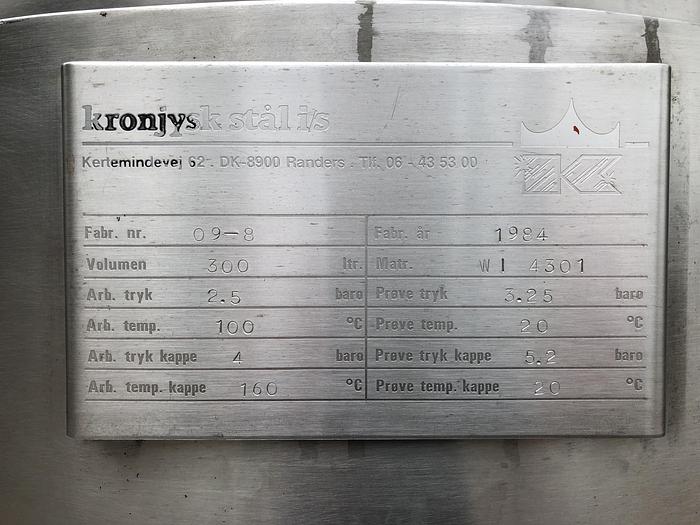 kronjysk stål i/s
Kertemindevej 62 . DK-8900 Randers . Tlf. 06 - 43 53 00
Fabr. nr. 09-8 Fabr. år 1984
Volumen 300 ltr. Matr. W I 4301
Arb. tryk 2.5 baro Prøve tryk 3.25 baro
Arb. temp. 100 °C Prøve temp. 20 °C
Arb. tryk kappe 4 baro Prøve tryk kappe 5.2 baro
Arb. temp. kappe 160 °C Prøve temp. kappe 20 °C